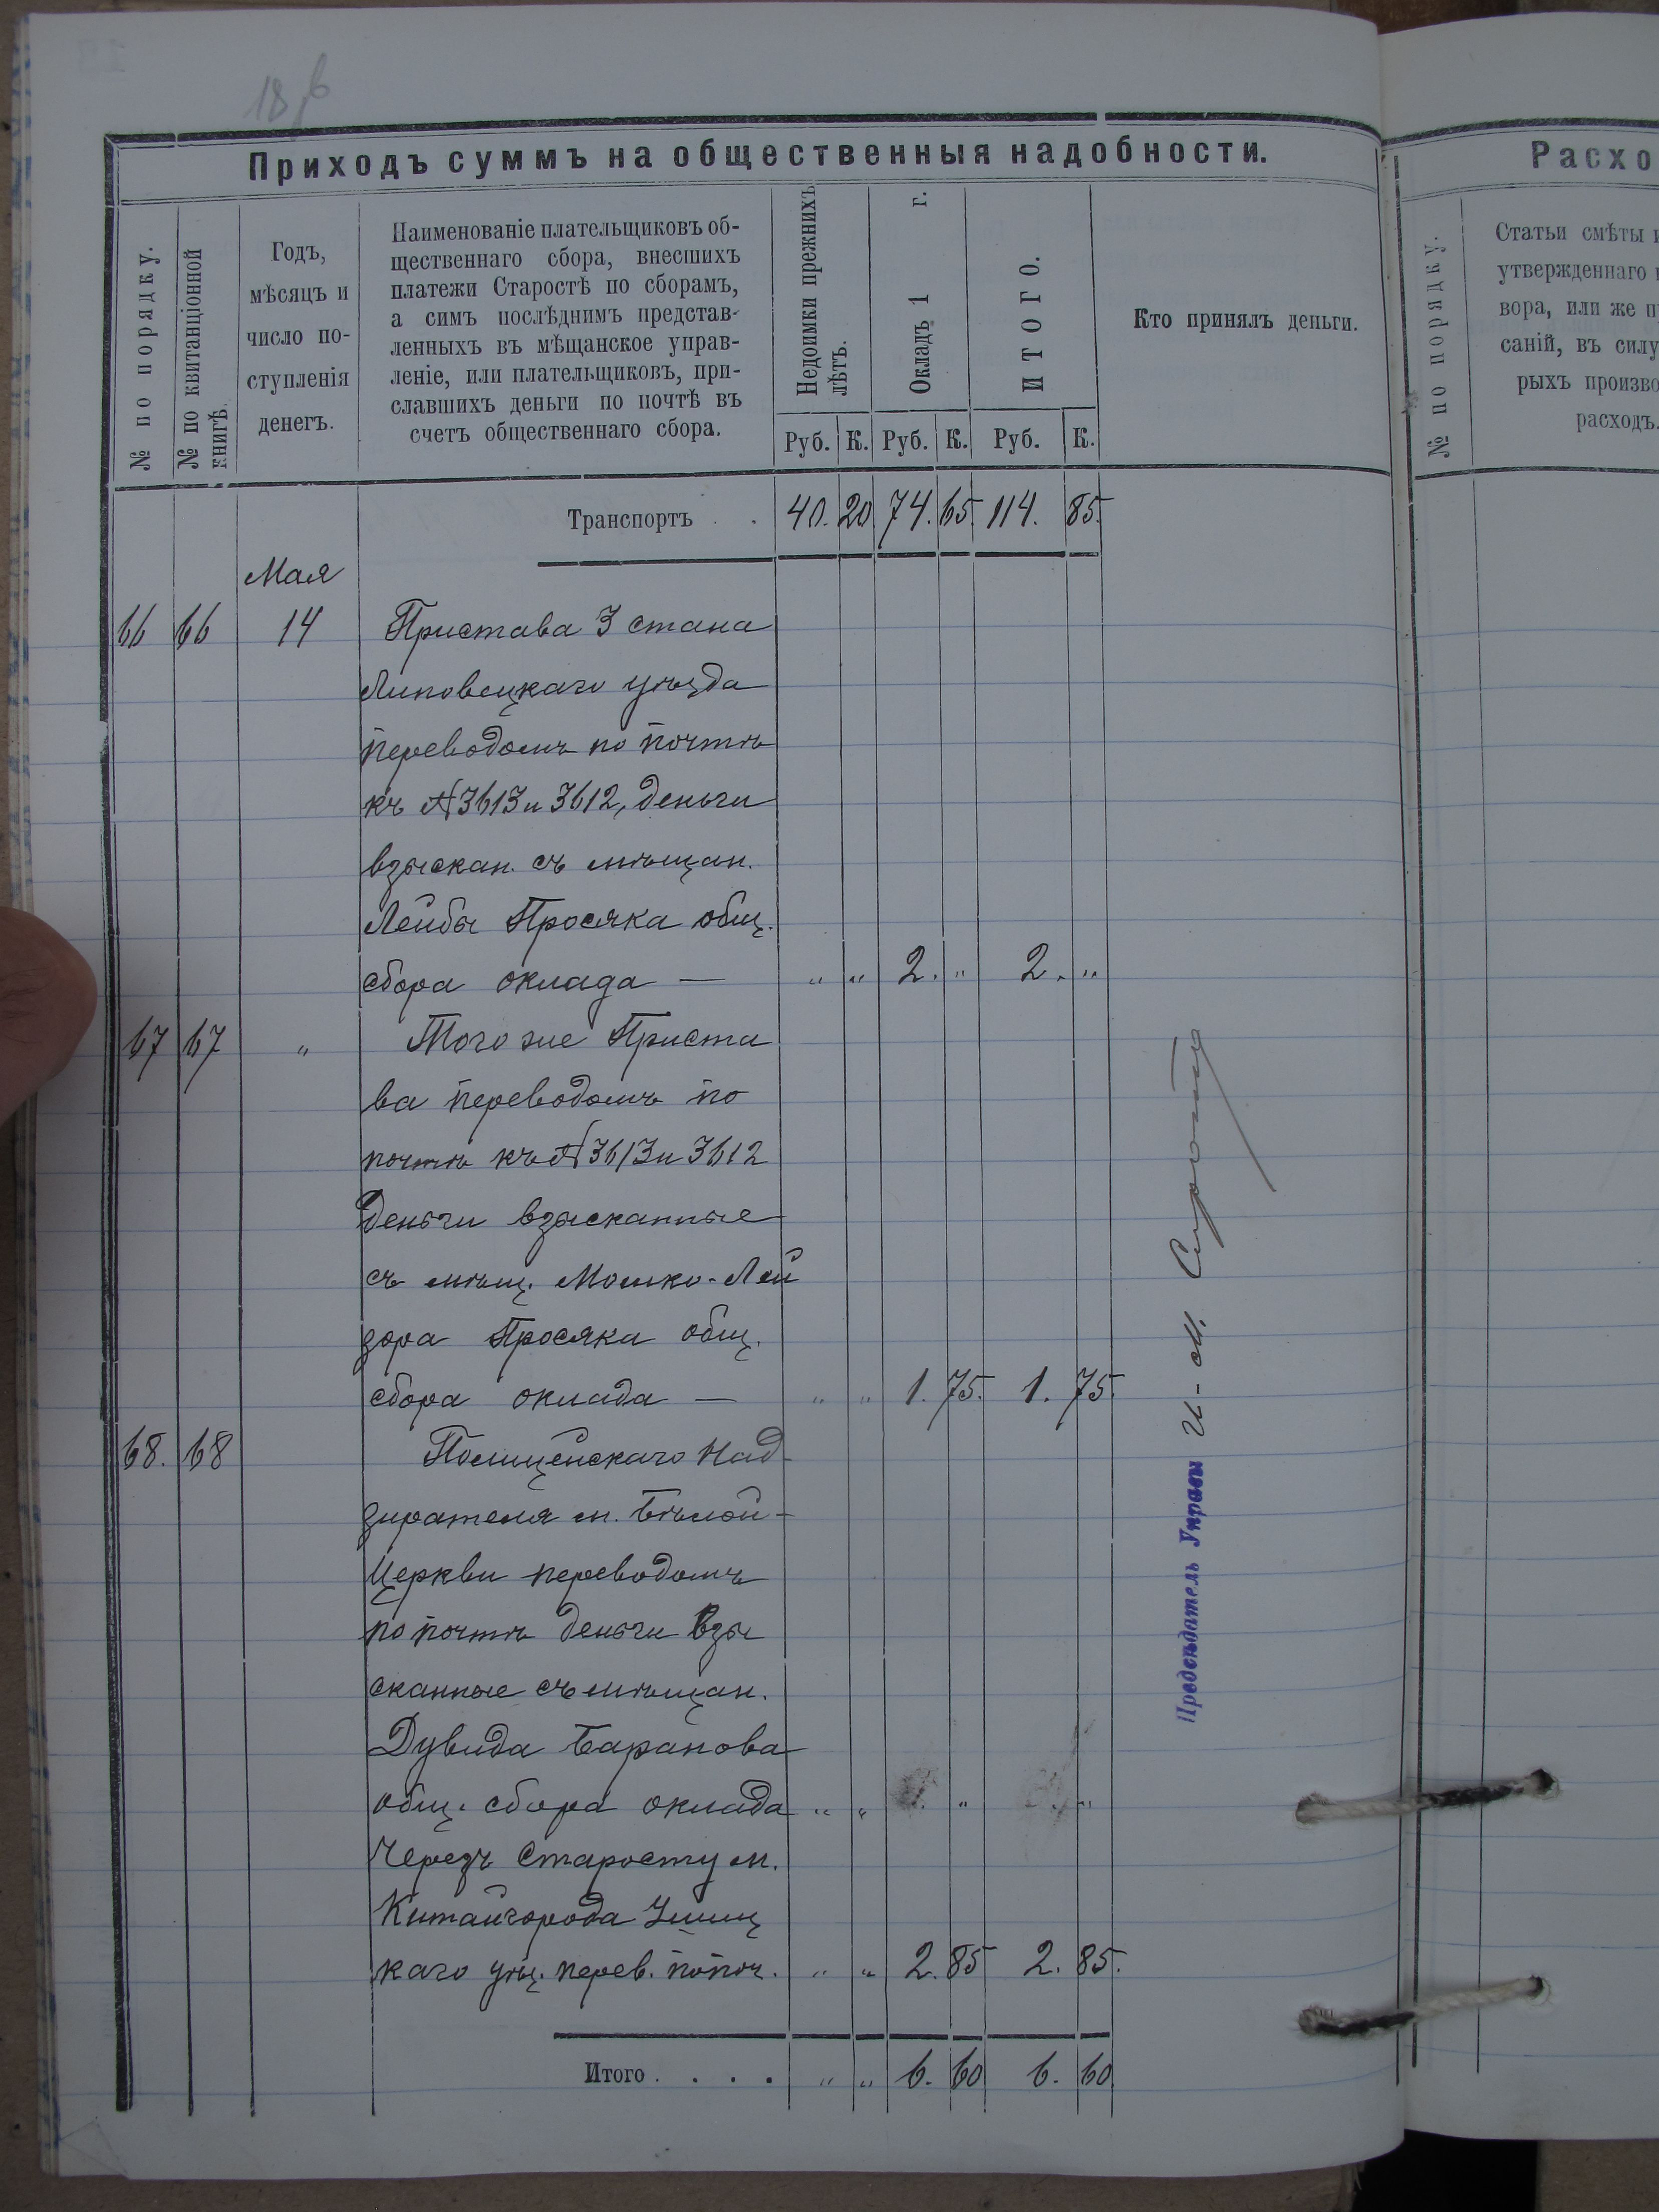 18 б
Приходъ суммъ на общественныя надобности.
№ по порядку.
№ по квитанціонной книгѣ.
Годъ,
мѣсяцъ и
число по-
ступленія
денегъ.
Наименованіе плательщиковъ об-
щественнаго сбора, внесшихъ
платежи Старостѣ по сборамъ,
а симъ послѣднимъ представ-
ленныхъ въ мѣщанское управ-
леніе, или плательщиковъ, при-
славшихъ деньги по почтѣ въ
счетъ общественнаго сбора.
Недоимки прежнихъ лѣтъ.
Окладъ 1 г.
ИТОГО.
Кто принялъ деньги.
Руб. К. Руб. К. Руб. К.
Транспортъ . . 40. 20 74. 65. 114. 85.
Мая
66 66 14 Пристава 3 стана
Липовецкаго уѣзда
переводомъ по почтѣ
къ № 3613 и 3612, деньги
взыскан. съ мѣщан.
Лейбы Просяка общ.
сбора оклада — „ „ 2. „ 2. „
67 67 „ Того же Приста
ва переводомъ по
почтѣ къ № 3613 и 3612
деньги взысканные
съ мѣщ. Мошко-Лей
зора Просяка общ.
сбора оклада — „ „ 1. 75. 1. 75.
68. 68 Полицейскаго Над-
зирателя м. Бѣлой-
Церкви переводомъ
по почтѣ деньги взы
сканные съ мѣщан.
Дувида Баранова
общ. сбора оклада „ „ „ „
Черезъ Старосту м.
Китайгорода Ушиц
каго уѣз. перев. по поч. „ „ 2. 85 2. 85.
Итого . . . . „ „ 6. 60 6. 60
Предсѣдатель Управы И-М.
Расхо
№ по порядку.
Статьи смѣты
утвержденнаго
вора, или же
саній, въ силу
рыхъ произво
расходъ.